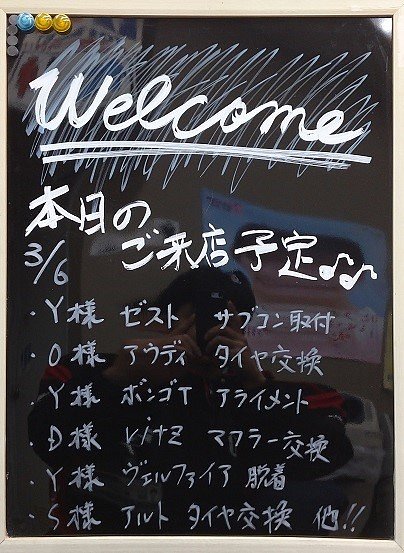 Welcome
本日の
3/6 ご来店予定♪♪
・Y様 ゼスト サブコン取付
・O様 アウディ タイヤ交換
・Y様 ボンゴT アライメント
・D様 マフラー交換
・Y様 ヴェルファイア 脱着
・S様 アルト タイヤ交換 他!!